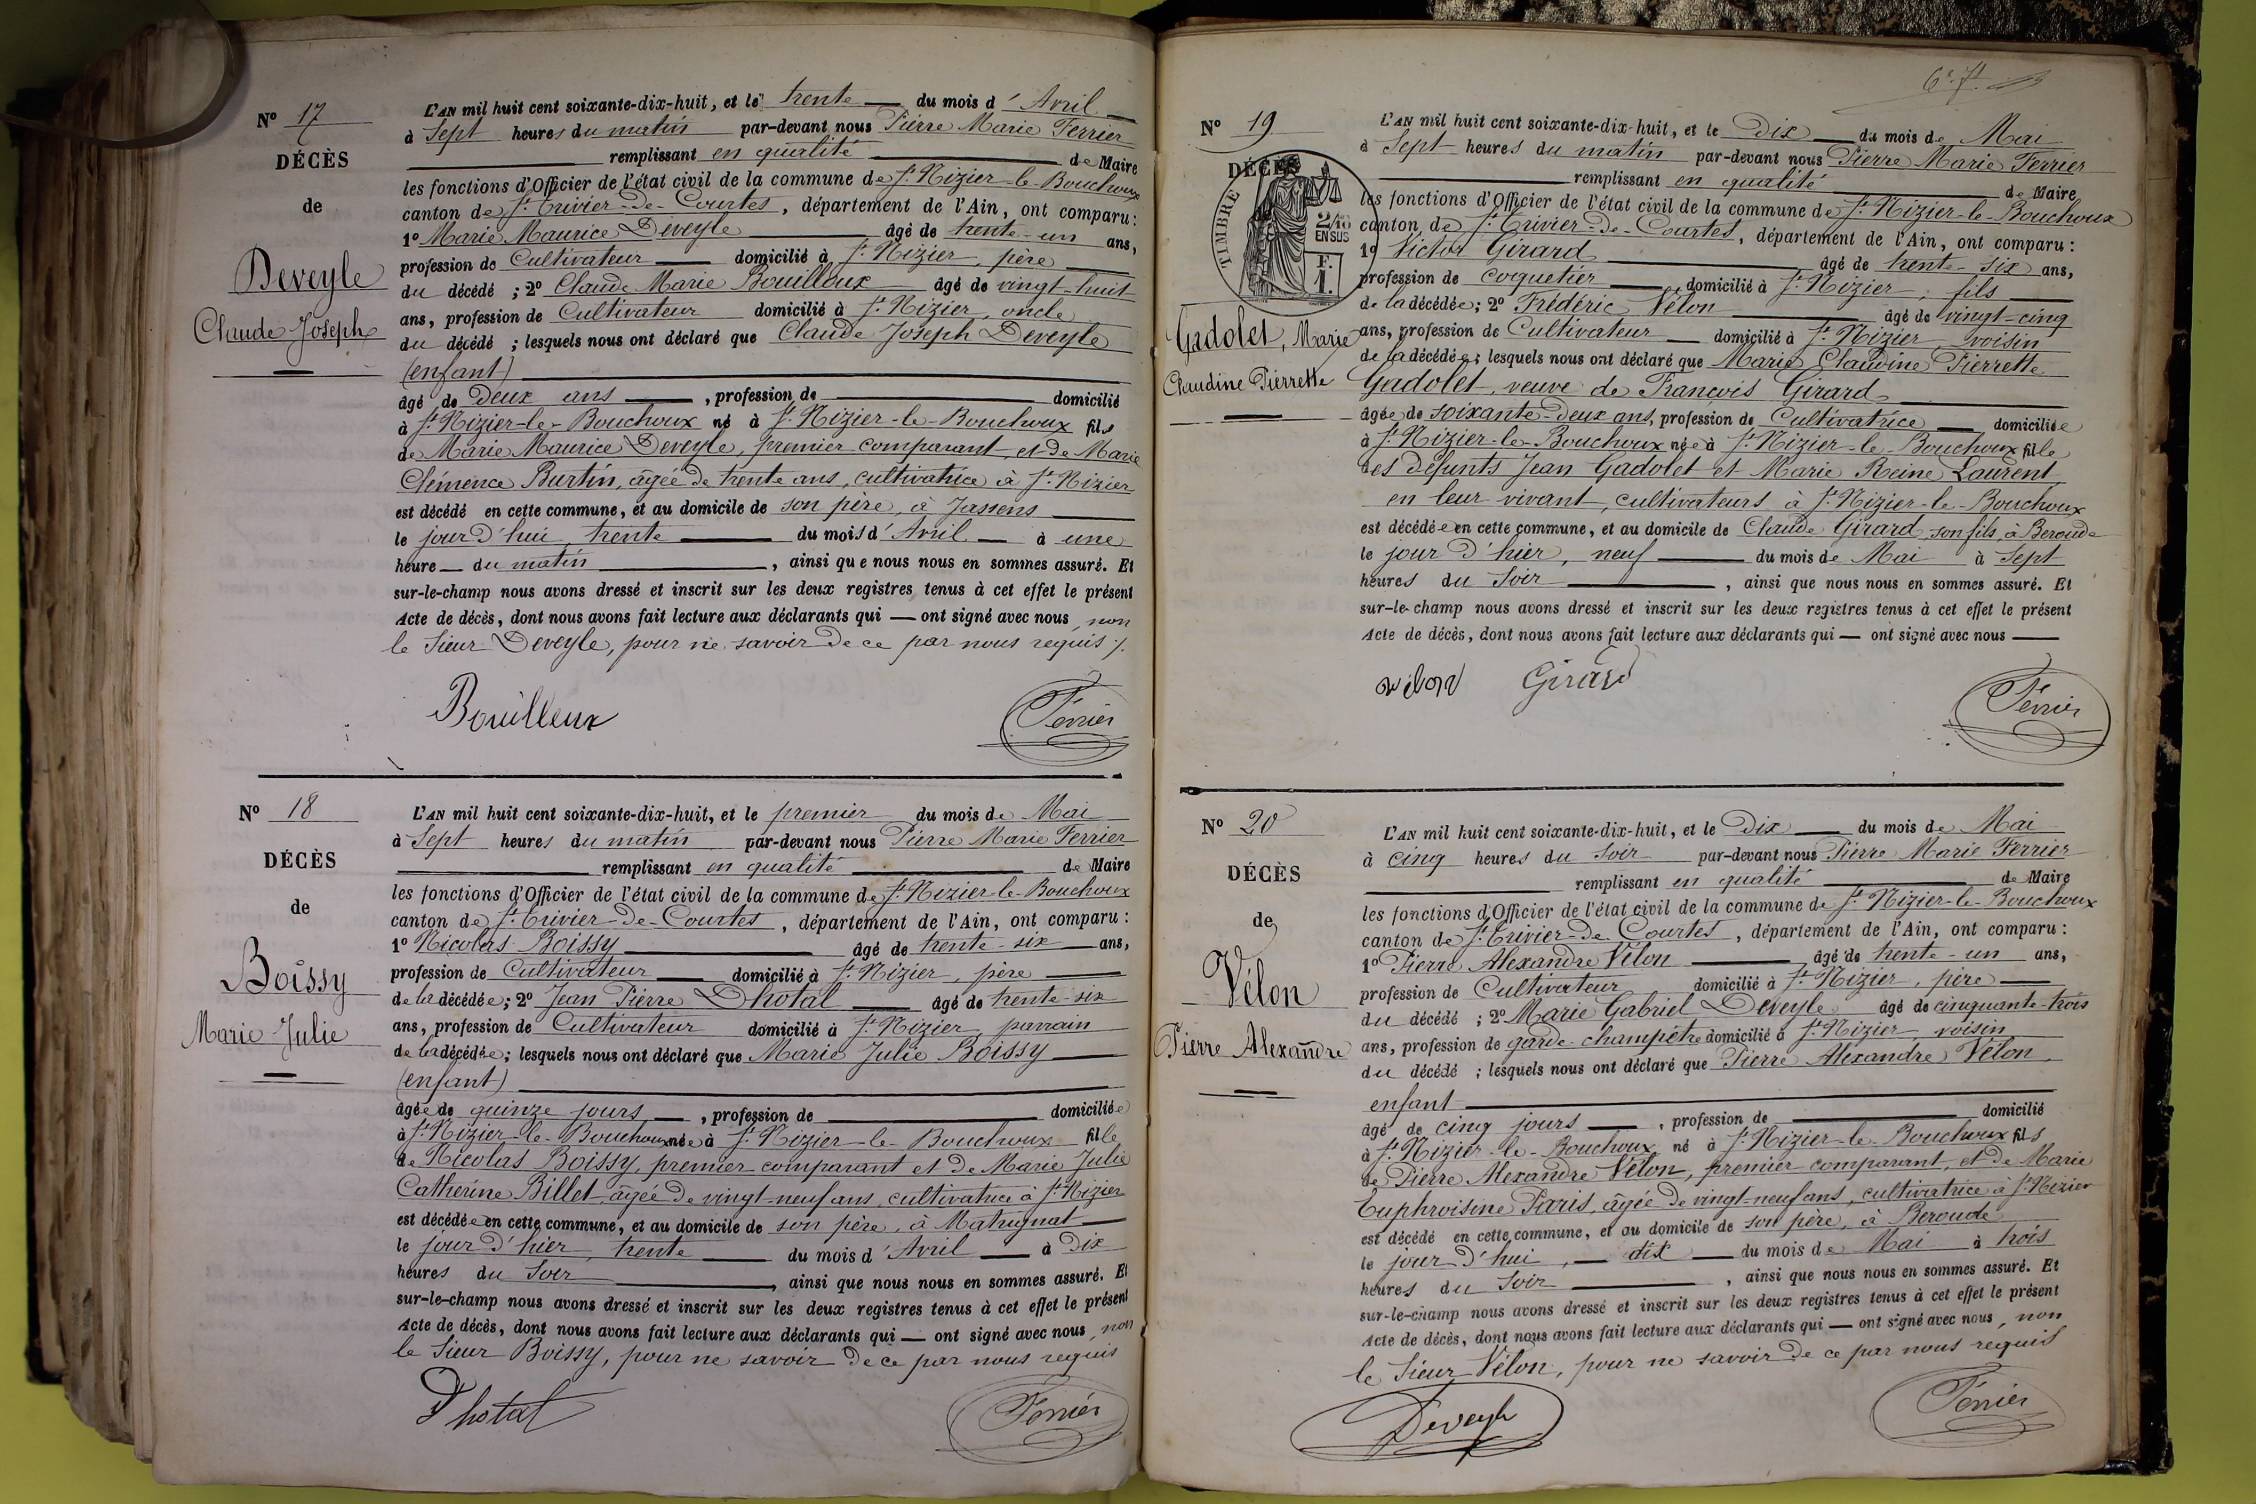 Nº 17
DÉCÈS
de
Deveyle
Claude Joseph
L'AN mil huit cent soixante-dix-huit, et le trente du mois d'Avril
à Sept heures du matin par-devant nous Pierre Marie Ferrier
remplissant en qualité de Maire
les fonctions d'Officier de l'état civil de la commune de St Nizier-le-Bouchoux
canton de St Trivier-de-Courtes, département de l'Ain, ont comparu :
1º Marie Maurice Deveyle âgé de trente-un ans,
profession de Cultivateur domicilié à St Nizier, père
du décédé ; 2º Claude Marie Bouilloux âgé de vingt-huit
ans, profession de Cultivateur domicilié à St Nizier, oncle
du décédé ; lesquels nous ont déclaré que Claude Joseph Deveyle
(enfant)
âgé de Deux ans, profession de domicilié
à St Nizier-le-Bouchoux né à St Nizier-le-Bouchoux fils
de Marie Maurice Deveyle, premier comparant, et de Marie
Clémence Burtin, âgée de trente ans, cultivatrice à St Nizier
est décédé en cette commune, et au domicile de son père, à Jassens
le jour d'hui, trente du mois d'Avril à une
heure du matin, ainsi que nous nous en sommes assuré. Et
sur-le-champ nous avons dressé et inscrit sur les deux registres tenus à cet effet le présent
Acte de décès, dont nous avons fait lecture aux déclarants qui — ont signé avec nous, non
le Sieur Deveyle, pour ne savoir de ce par nous requis ./.
Bouilleux Ferrier
Nº 18
DÉCÈS
de
Boissy
Marie Julie
L'AN mil huit cent soixante-dix-huit, et le premier du mois de Mai
à Sept heures du matin par-devant nous Pierre Marie Ferrier
remplissant en qualité de Maire
les fonctions d'Officier de l'état civil de la commune de St Nizier-le-Bouchoux
canton de St Trivier-de-Courtes, département de l'Ain, ont comparu :
1º Nicolas Boissy âgé de trente-six ans,
profession de Cultivateur domicilié à St Nizier, père
de la décédée ; 2º Jean Pierre Dhotal âgé de trente-six
ans, profession de Cultivateur domicilié à St Nizier, parrain
de la décédée ; lesquels nous ont déclaré que Marie Julie Boissy
(enfant)
âgée de quinze jours, profession de domiciliée
à St Nizier-le-Bouchoux née à St Nizier-le-Bouchoux fille
de Nicolas Boissy, premier comparant et de Marie Julie
Catherine Billet, âgée de vingt-neuf ans, cultivatrice à St Nizier
est décédée en cette commune, et au domicile de son père, à Matrignat
le jour d'hier, trente du mois d'Avril à Dix
heures du Soir, ainsi que nous nous en sommes assuré. Et
sur-le-champ nous avons dressé et inscrit sur les deux registres tenus à cet effet le présent
Acte de décès, dont nous avons fait lecture aux déclarants qui — ont signé avec nous, non
le Sieur Boissy, pour ne savoir de ce par nous requis
Dhotal Ferrier
Nº 19
DÉCÈS
TIMBRE
2/10
EN SUS
F.
1.
Gadolet, Marie
Claudine Pierrette
L'AN mil huit cent soixante-dix-huit, et le Dix du mois de Mai
à Sept heures du matin par-devant nous Pierre Marie Ferrier
remplissant en qualité de Maire
les fonctions d'Officier de l'état civil de la commune de St Nizier-le-Bouchoux
canton de St Trivier-de-Courtes, département de l'Ain, ont comparu :
1º Victor Girard âgé de trente-six ans,
profession de coquetier domicilié à St Nizier, fils
de la décédée ; 2º Frédéric Vélon âgé de vingt-cinq
ans, profession de Cultivateur domicilié à St Nizier, voisin
de la décédée ; lesquels nous ont déclaré que Marie Claudine Pierrette
Gadolet, veuve de François Girard
âgée de soixante-deux ans, profession de Cultivatrice domiciliée
à St Nizier-le-Bouchoux née à St Nizier-le-Bouchoux fille
des défunts Jean Gadolet et Marie Reine Laurent
en leur vivant, cultivateurs à St Nizier-le-Bouchoux
est décédée en cette commune, et au domicile de Claude Girard, son fils, à Beroude
le jour d'hier, neuf du mois de Mai à Sept
heures du Soir, ainsi que nous nous en sommes assuré. Et
sur-le-champ nous avons dressé et inscrit sur les deux registres tenus à cet effet le présent
Acte de décès, dont nous avons fait lecture aux déclarants qui — ont signé avec nous
vélon Girard Ferrier
Nº 20
DÉCÈS
de
Vélon
Pierre Alexandre
L'AN mil huit cent soixante-dix-huit, et le Dix du mois de Mai
à cinq heures du Soir par-devant nous Pierre Marie Ferrier
remplissant en qualité de Maire
les fonctions d'Officier de l'état civil de la commune de St Nizier-le-Bouchoux
canton de St Trivier-de-Courtes, département de l'Ain, ont comparu :
1º Pierre Alexandre Vélon âgé de trente-un ans,
profession de Cultivateur domicilié à St Nizier, père
du décédé ; 2º Marie Gabriel Deveyle âgé de cinquante-trois
ans, profession de garde-champêtre domicilié à St Nizier, voisin
du décédé ; lesquels nous ont déclaré que Pierre Alexandre Vélon
enfant
âgé de cinq jours, profession de domicilié
à St Nizier-le-Bouchoux né à St Nizier-le-Bouchoux fils
de Pierre Alexandre Vélon, premier comparant, et de Marie
Euphroisine Paris, âgée de vingt-neuf ans, cultivatrice à St Nizier
est décédé en cette commune, et au domicile de son père, à Beroude
le jour d'hui, — dix — du mois de Mai à trois
heures du Soir, ainsi que nous nous en sommes assuré. Et
sur-le-champ nous avons dressé et inscrit sur les deux registres tenus à cet effet le présent
Acte de décès, dont nous avons fait lecture aux déclarants qui — ont signé avec nous, non
le Sieur Vélon, pour ne savoir de ce par nous requis
Deveyle Ferrier